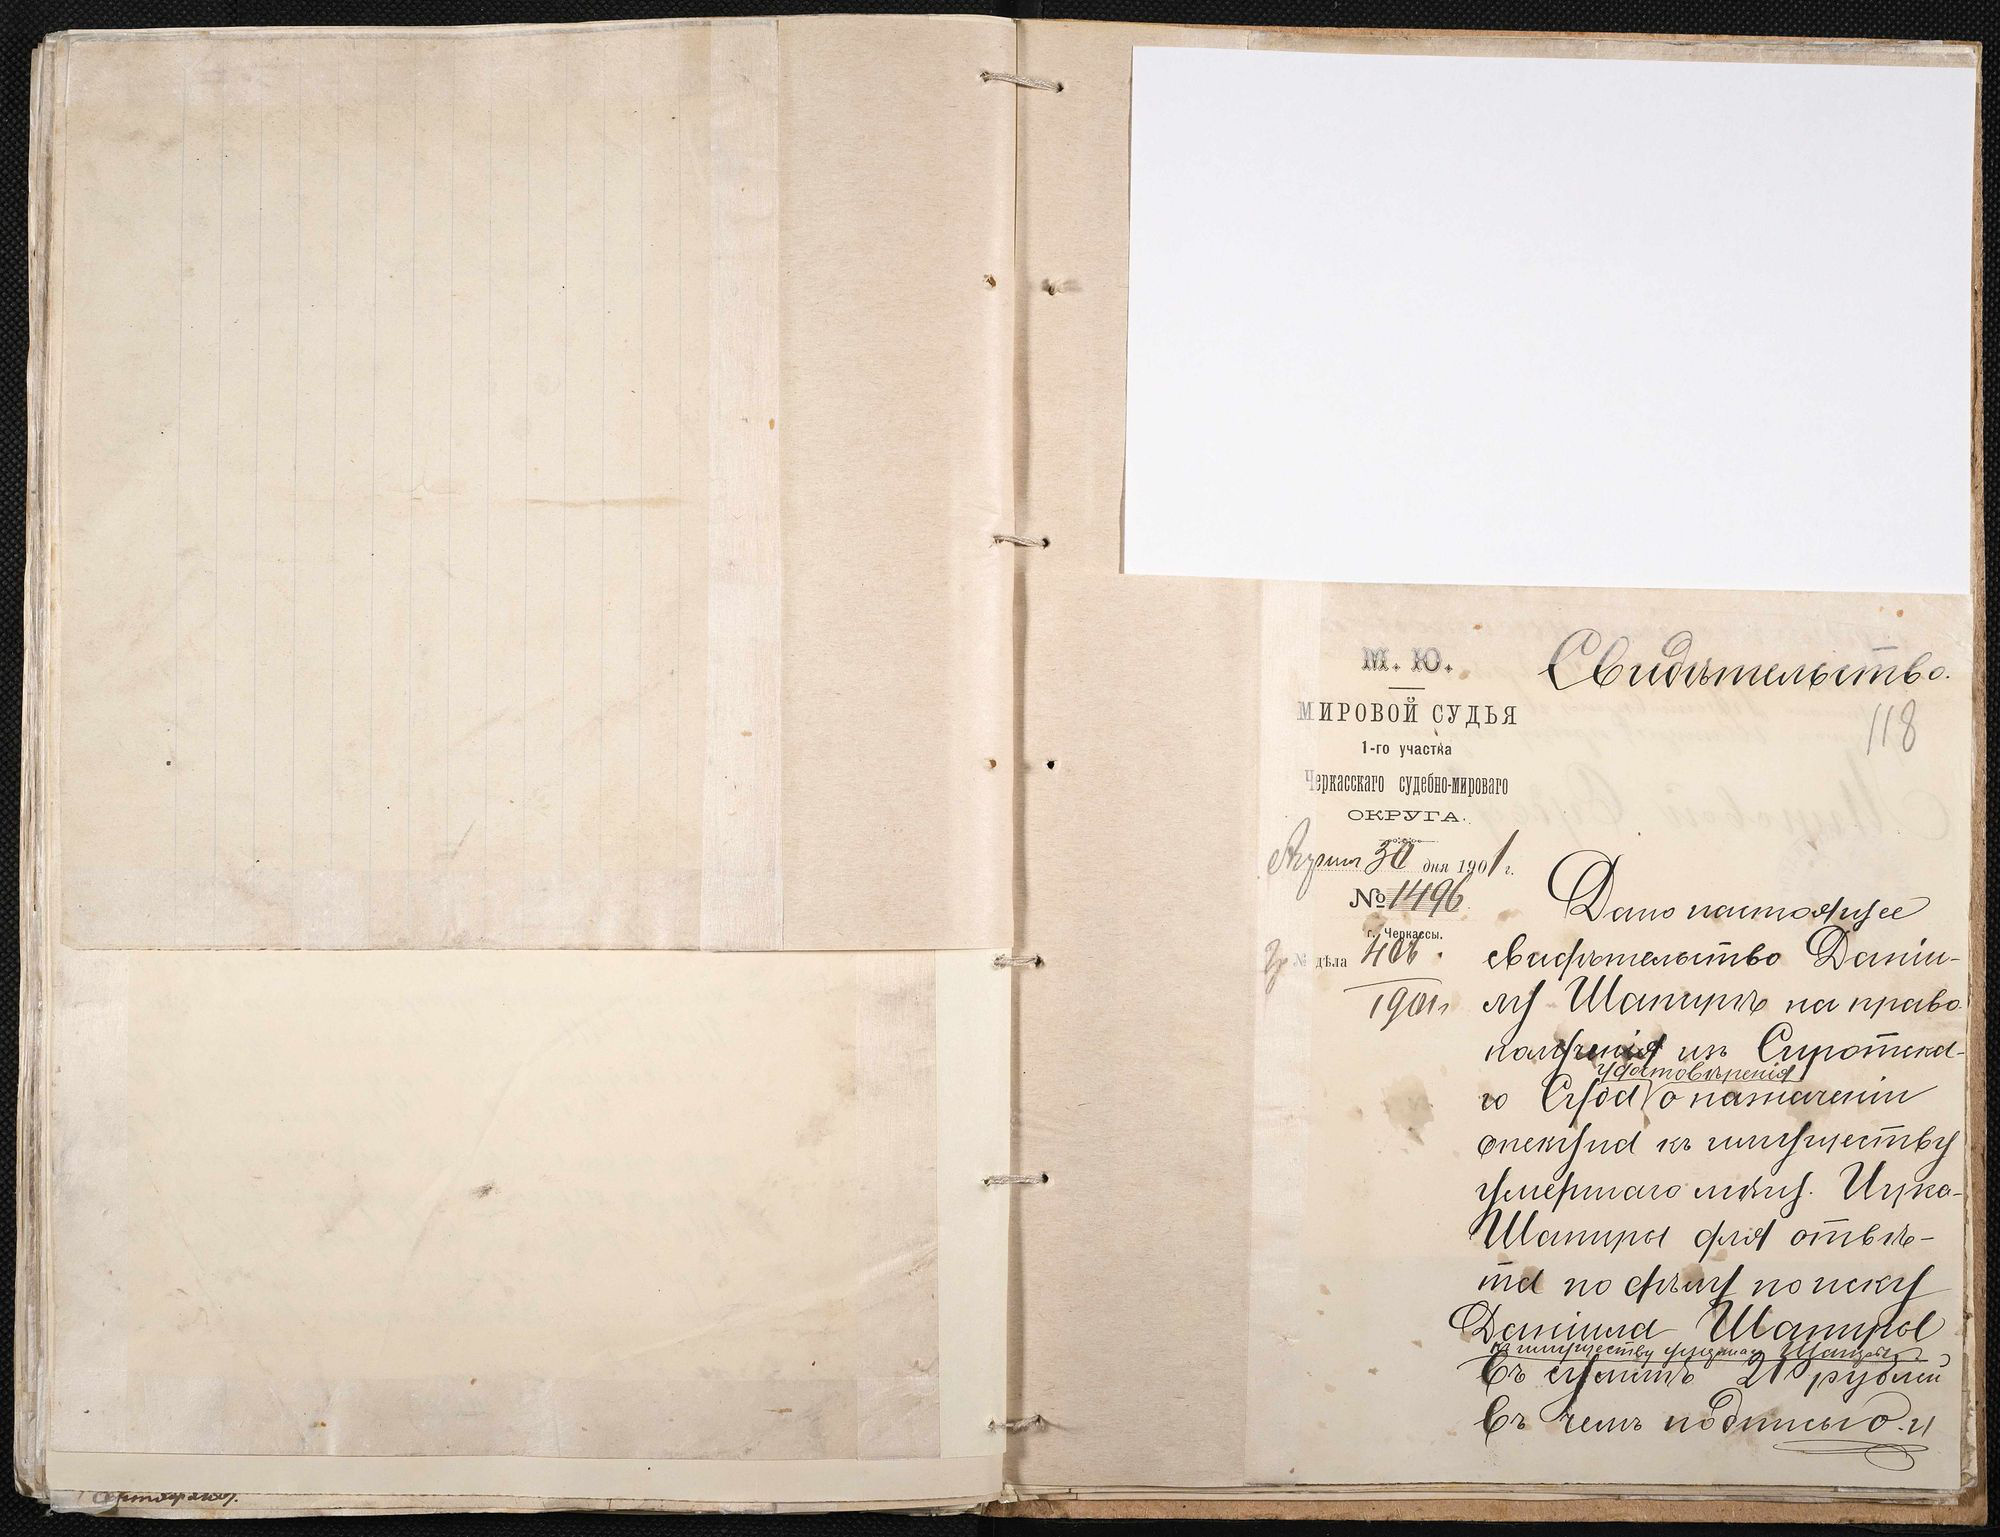 М. Ю.
МИРОВОЙ СУДЬЯ
1-го участка
Черкасскаго судебно-мироваго
ОКРУГА.
Апрѣля 30 дня 1901 г.
№ 1496
г. Черкассы.
№ дѣла 408.
1901 г.
Свидѣтельство.
118
Дано настоящее
свидѣтельство Даніи-
лу Шапирѣ на право
полученія изъ Сиротска-
удостовѣренія
го Суда о назначеніи
опекуна къ имуществу
умершаго мѣщ. Ицка
Шапиры для отвѣ-
та по дѣлу по иску
Даніила Шапиры
къ имуществу Шапиры
въ суммѣ 210 рублей
въ чемъ подписью и